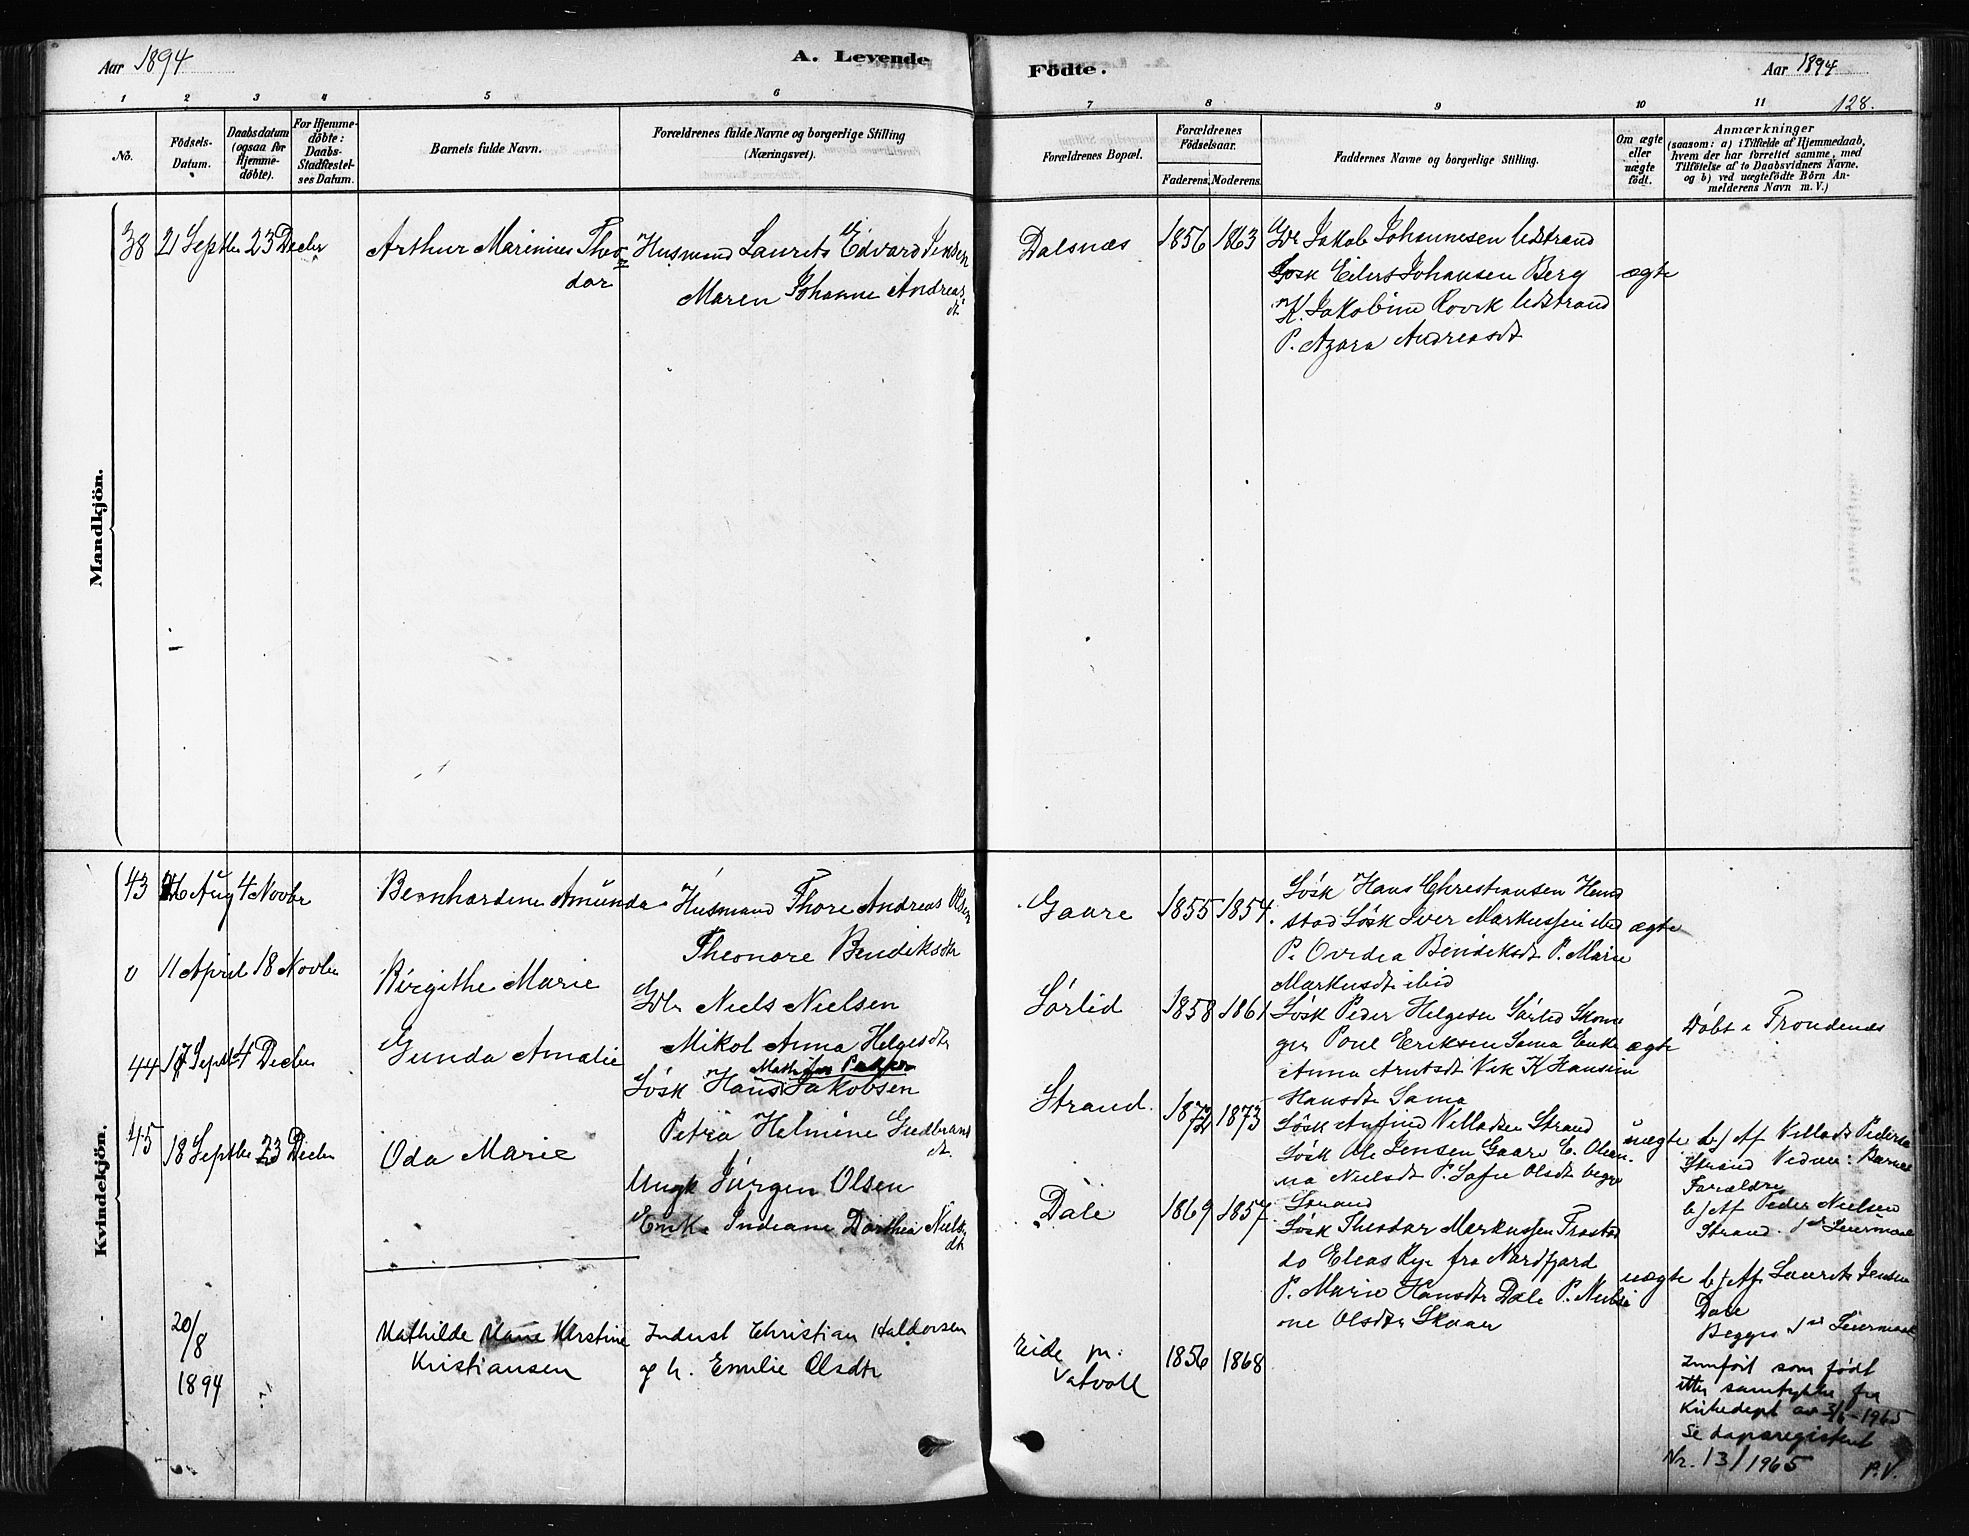 Aar 1894
A. Levende
Födte.
Aar 1894
128.
1 2 3 4 5 6 7 8 9 10 11
No.
Födsels-
Datum.
Daabsdatum
(ogsaa for
Hjemme-
döbte).
For Hjemme-
döbte:
Daabs-
Stadfæstel-
ses Datum.
Barnets fulde Navn.
Forældrenes fulde Navne og borgerlige Stilling
(Næringsvei).
Forældrenes Bopæl.
Forældrenes
Födselsaar.
Faderens. Moderens.
Faddernes Navne og borgerlige Stilling.
Om ægte
eller
uægte
födt.
Anmærkninger
(saasom: a) i Tilfælde af Hjemmedaab,
hvem der har forrettet samme, med
Tilföielse af to Daabsvidners Navne.
og b) ved uægtefödte Börn An-
melderens Navn m. V.)
Mandkjön.
38 21 Septbr 23 Decbr
Arthur Marinius Theo
dor
Husmand Laurits Edvard Jensen
Maren Johanne Andreas
dt.
Dalsnæs
1856 1863
Gbr Jakob Johannesen Udstrand
Losk Eilert Johansen Berg
K. Jakobine Rovik Udstrand
P. Azora Andreasdt
ægte
Kvindekjön.
43 26 Aug 4 Novbr
Bernhardine Amunda
Husmand Thore Andreas Olsen
Theonore Bendiksdtr
Gaare
1855 1854.
Losk Hans Christiansen Hem
stad Losk Iver Markussen ibid
P. Ovidea Bendiksdt P. Marie
Markusdt ibid
ægte
0 11 April 18 Novbr
Birgithe Marie
Gbr Niels Nielsen
Mikol Anna Helgesdtr
Sørlid
1858 1861
Losk Peder Helgesen Sørlid Skoma
ger Poul Eriksen Sama Enke
Anna Arntsdt Vik K Hansine
Hansdt Sama
ægte
Døbt i Trondenes
44 17 Septb 4 Decbr
Gunda Amalie
Mathias Peder
Løsk Hans Jakobsen
Petra Helmine Gudbrands
dt.
Strand.
1872 1873
Løsk Anfind Villadsen Strand
Løsk Ole Jensen Gaare E. Olean
na Nielsdt P. Sofie Olsdt begge
Strand
uægte
b/ Af Villads Peders
Strand Vedme: Barnets
Forældre
b/ Af Peder Nielsen
Strand. 1ste Leiermaal
45 18 Septbr 23 Decbr
Oda Marie
Ungk Jørgen Olsen
Enk. Indiane Dorthea Niels
dt
Dale
1869 1857
Løsk Theodor Markussen Trastad
do Eleas Rye fra Nordfjord
P. Marie Hansdtr Dale P. Niels
ine Olsdtr Skaar
uægte
b/ Af Laurits Jensen
Dale
Begges 1ste Leiermaal
20/8
1894
Mathilde Marie Kerstine
Kristiansen
Indust Christian Haldorsen
og h. Emilie Olsdtr
Eide pr.
Vatvoll
1856 1868
Innført som født
etter samtykke fra
Kirkedept av 3/6-1965
Se dapsregisteret
Nr. 13/1965 A.V.